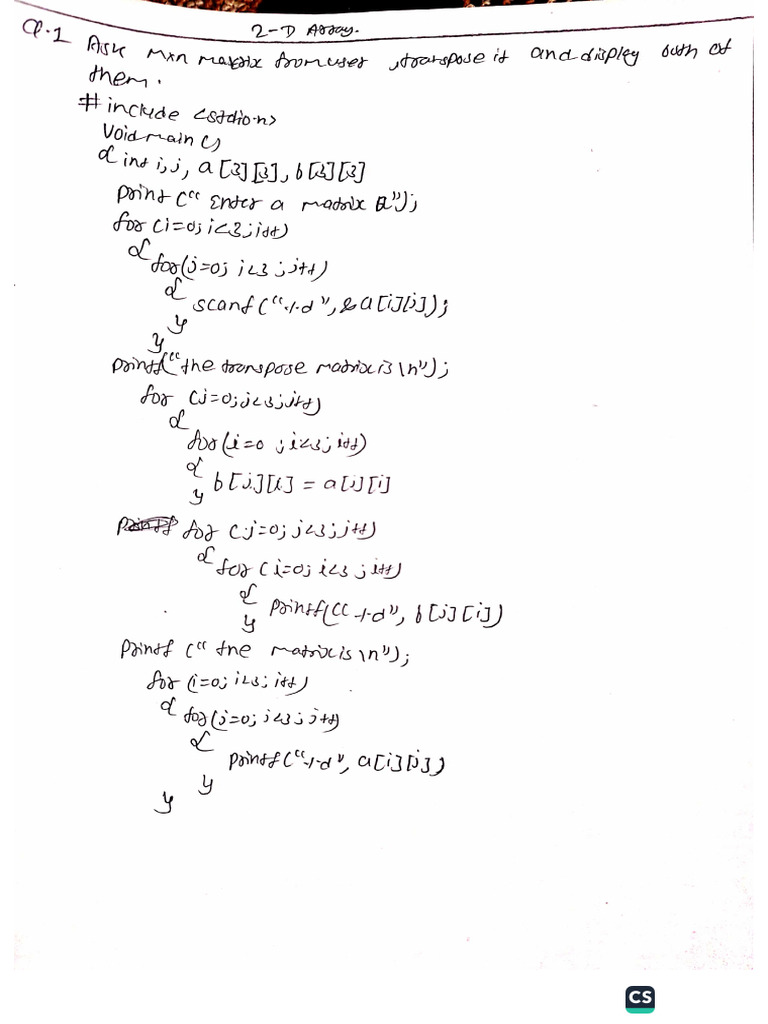 2-D Array.
Q.1 Ask mxn matrix from user, transpose it and display both of
them.
# include <stdio.h>
Void main ()
{ int i,j, a[3][3], b[3][3]
print (" Enter a matrix ");
for (i=0; i<3; i++)
{
for(j=0; j<3; j++)
{
scanf ("%d", &a[i][j]);
}
}
printf("the transpose matrix is \n");
for (j=0; j<3; j++)
{
for(i=0; i<3; i++)
{
b[j][i] = a[j][i]
}
for (j=0; j<3; j++)
{
for (i=0; i<3; i++)
{
printf(("%d", b[j][i])
}
printf (" the matrix is \n");
for (i=0; i<3; i++)
{
for (j=0; j<3; j++)
{
printf ("%d", a[i][j])
}
}
CS